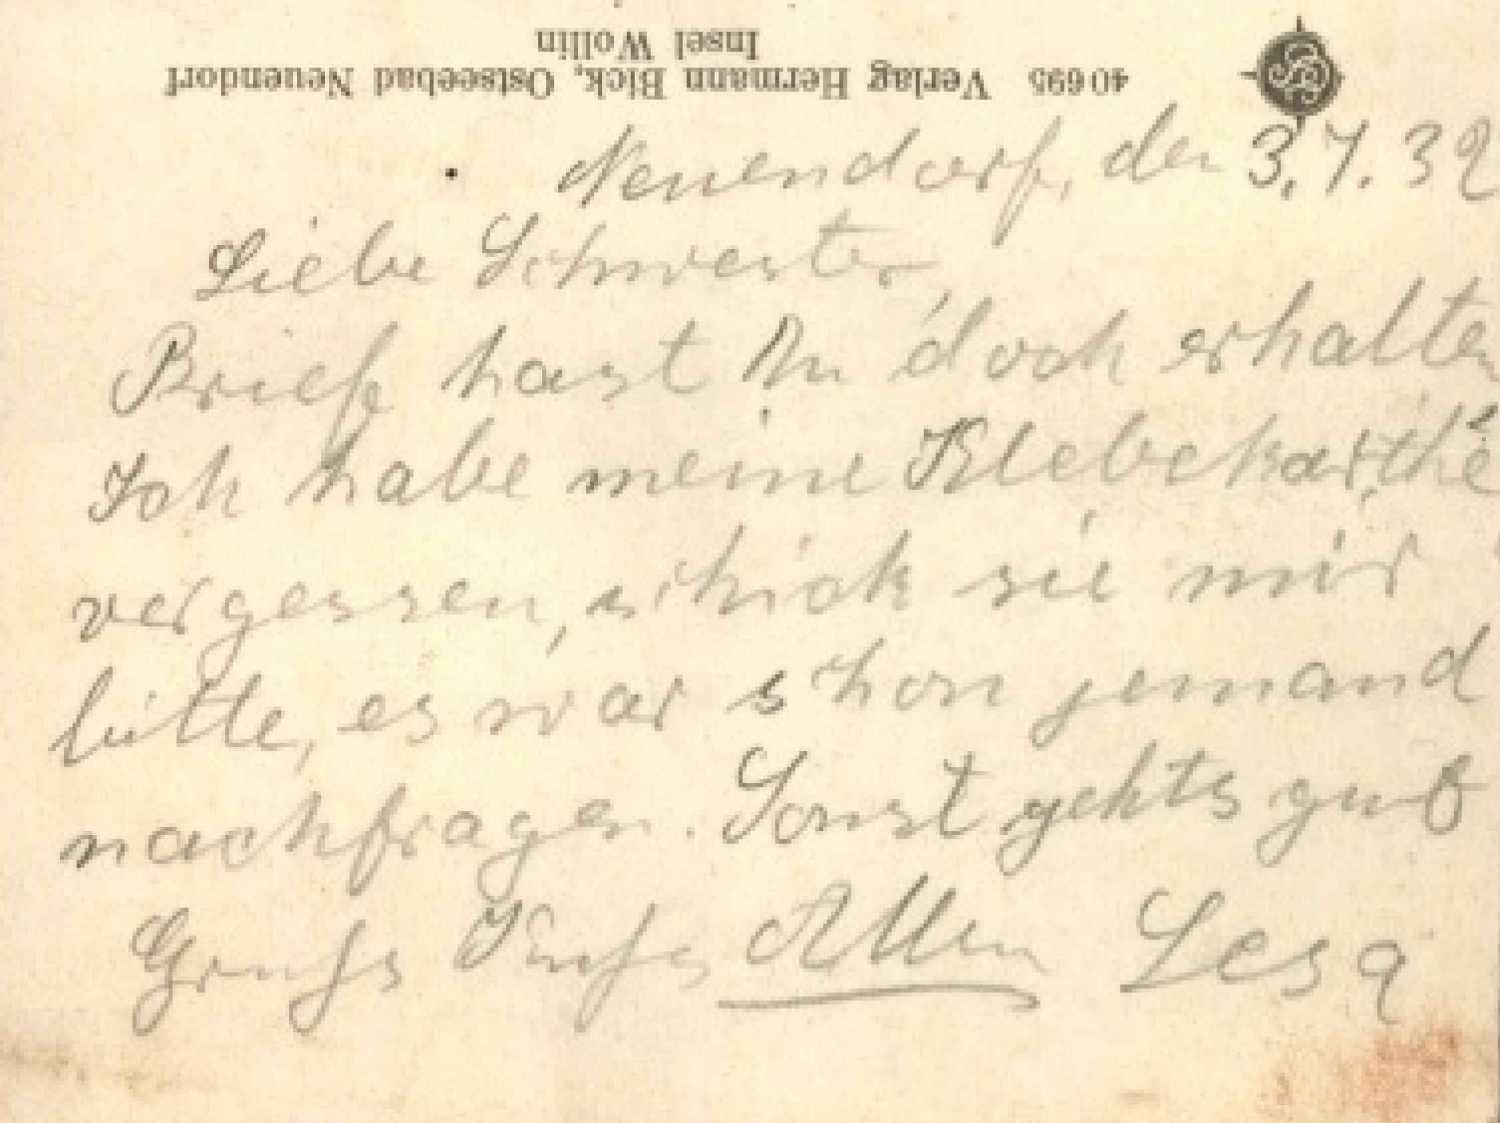 40695 Verlag Hermann Bick, Ostseebad Neuendorf
Insel Wollin
Neuendorf, den 3.7.32
Liebe Schwester,
Brief hast Du doch erhalten
Ich habe meine Klebekarthe
vergessen, schick sie mir
bitte, es war schon jemand
nachfragen. Sonst gehts gut
Gruss Kuss Allen